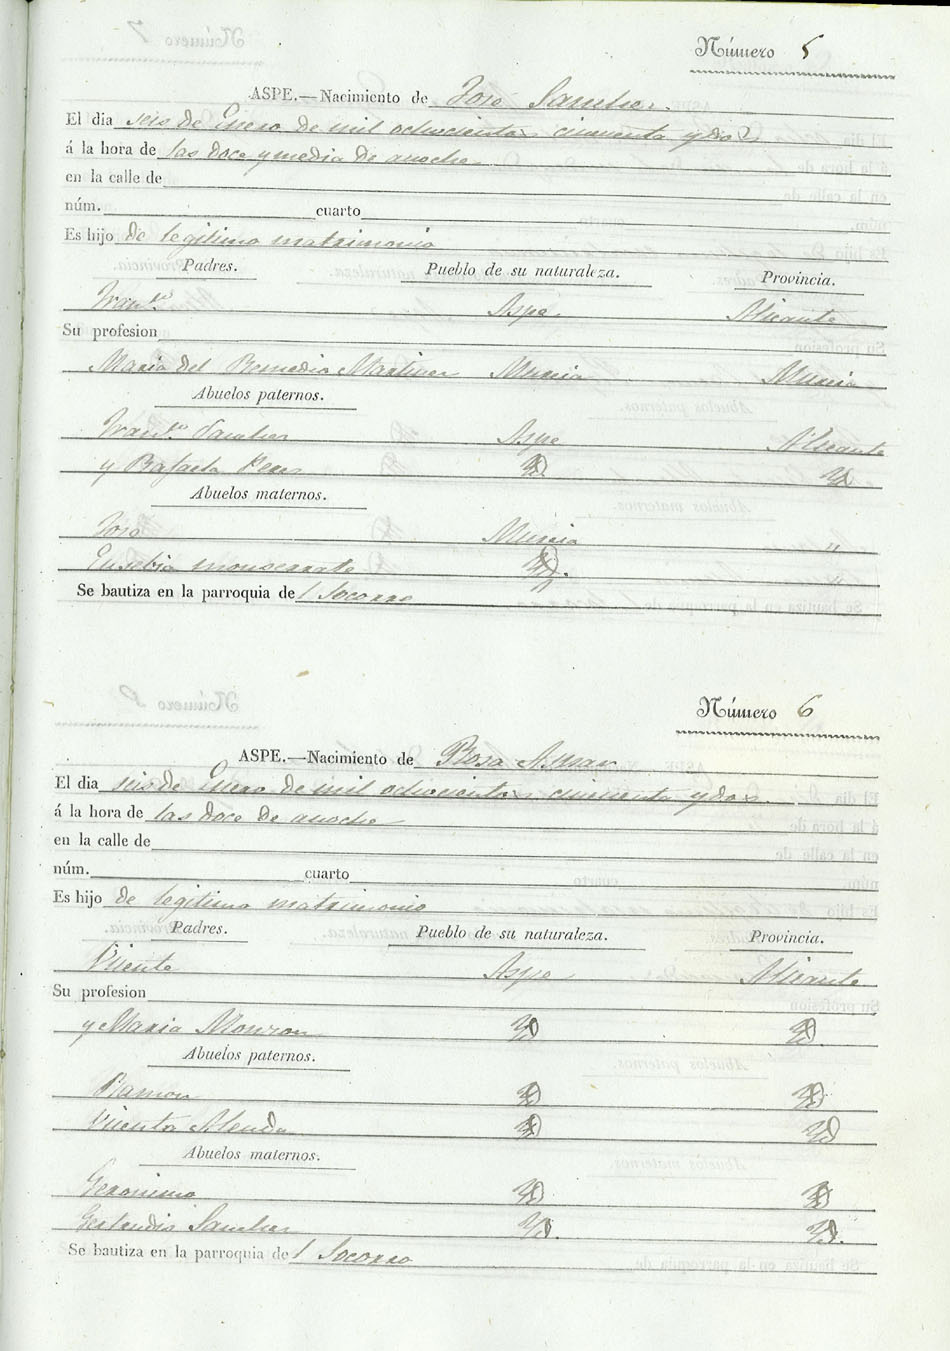 Número 5
ASPE.—Nacimiento de José Sanchez.
El dia seis de Enero de mil ochocientos cincuenta y dos
á la hora de las doce y media de anoche
en la calle de
núm. cuarto
Es hijo de legitimo matrimonio
Padres. Pueblo de su naturaleza. Provincia.
Fran.co Aspe Alicante
Su profesion
Maria del Remedio Martinez Murcia Murcia
Abuelos paternos.
Fran.co Sanchez Aspe Alicante
y Rafaela Perez Yd. Yd
Abuelos maternos.
José Murcia "
Eusebia Monserrate Yd. "
Se bautiza en la parroquia del Socorro
Número 6
ASPE.—Nacimiento de Rosa
El dia seis de Enero de mil ochocientos cincuenta y dos
á la hora de las doce de anoche
en la calle de
núm. cuarto
Es hijo de legitimo matrimonio
Padres. Pueblo de su naturaleza. Provincia.
Vicente Aspe Alicante
Su profesion
y Maria Monzon Yd Yd.
Abuelos paternos.
Ramon Yd Yd
Vicenta Alenda Yd Yd
Abuelos maternos.
Geronimo Yd Yd
Gertrudis Sanchez Yd. Yd.
Se bautiza en la parroquia del Socorro